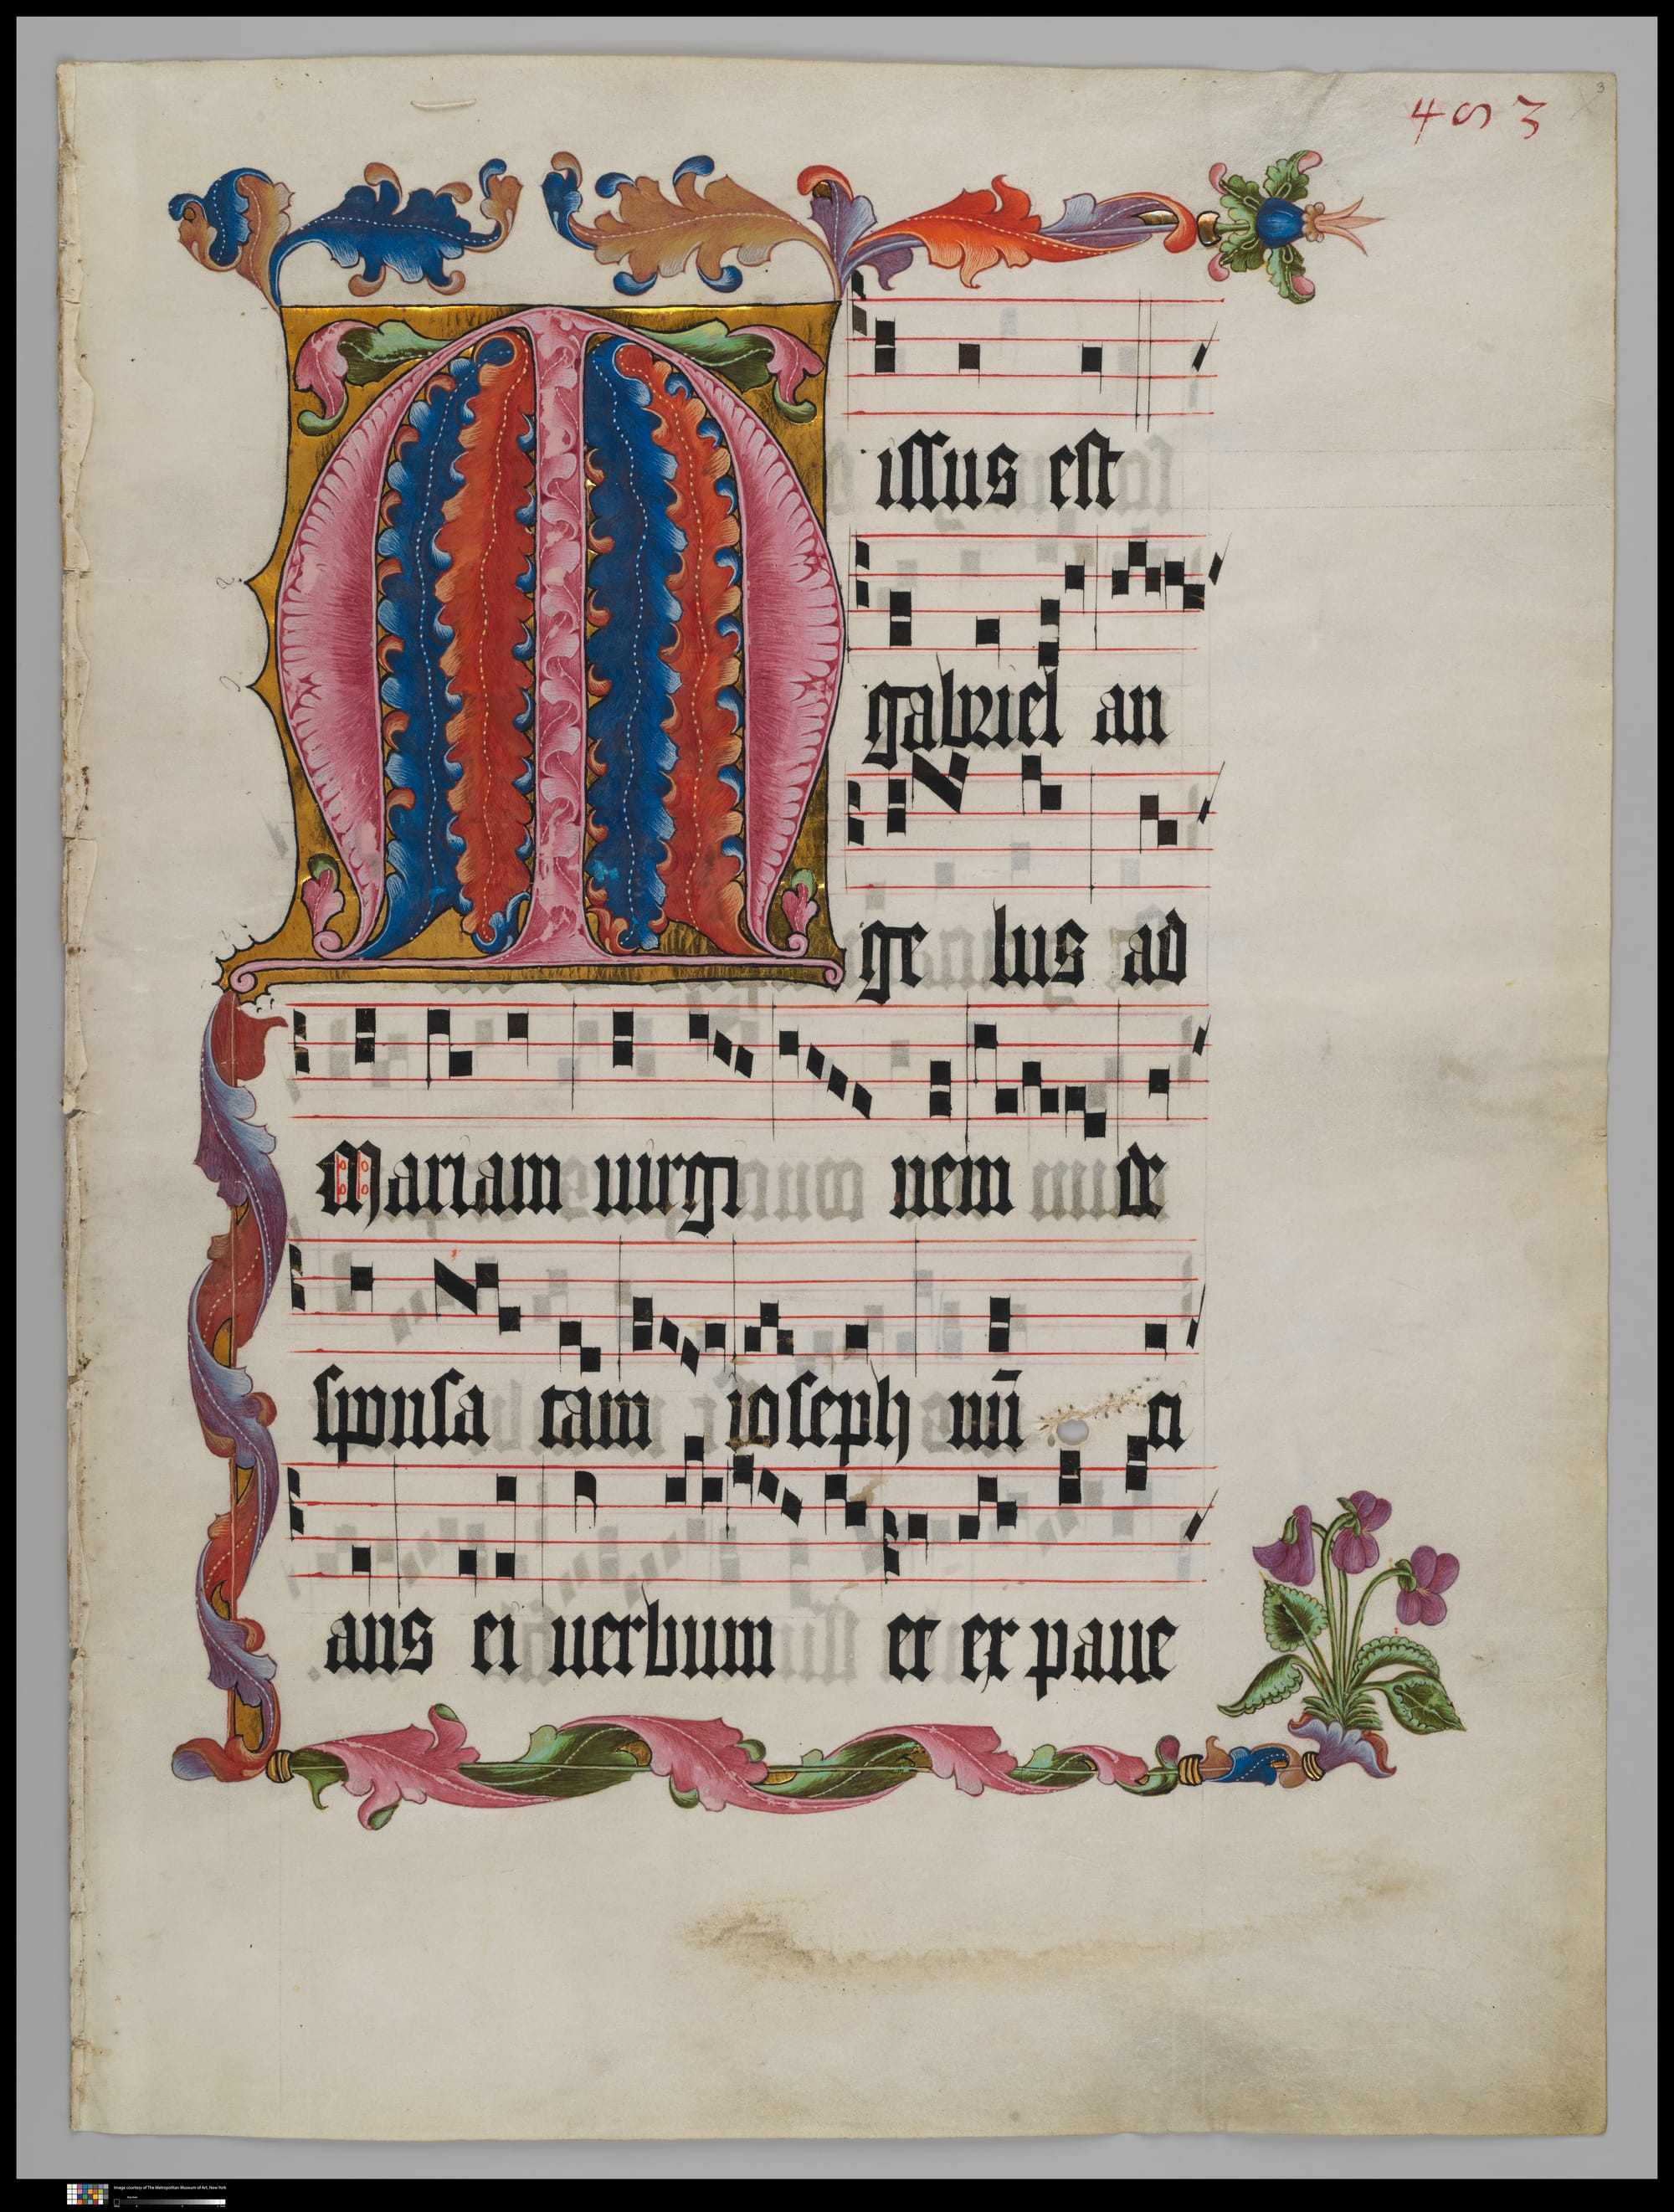 453
3
Missus est
gabriel an
ge lus ad
Mariam uirgi nem de
sponsa tam ioseph nū ci
ans ei uerbum et ex paue
Image courtesy of The Metropolitan Museum of Art, New York